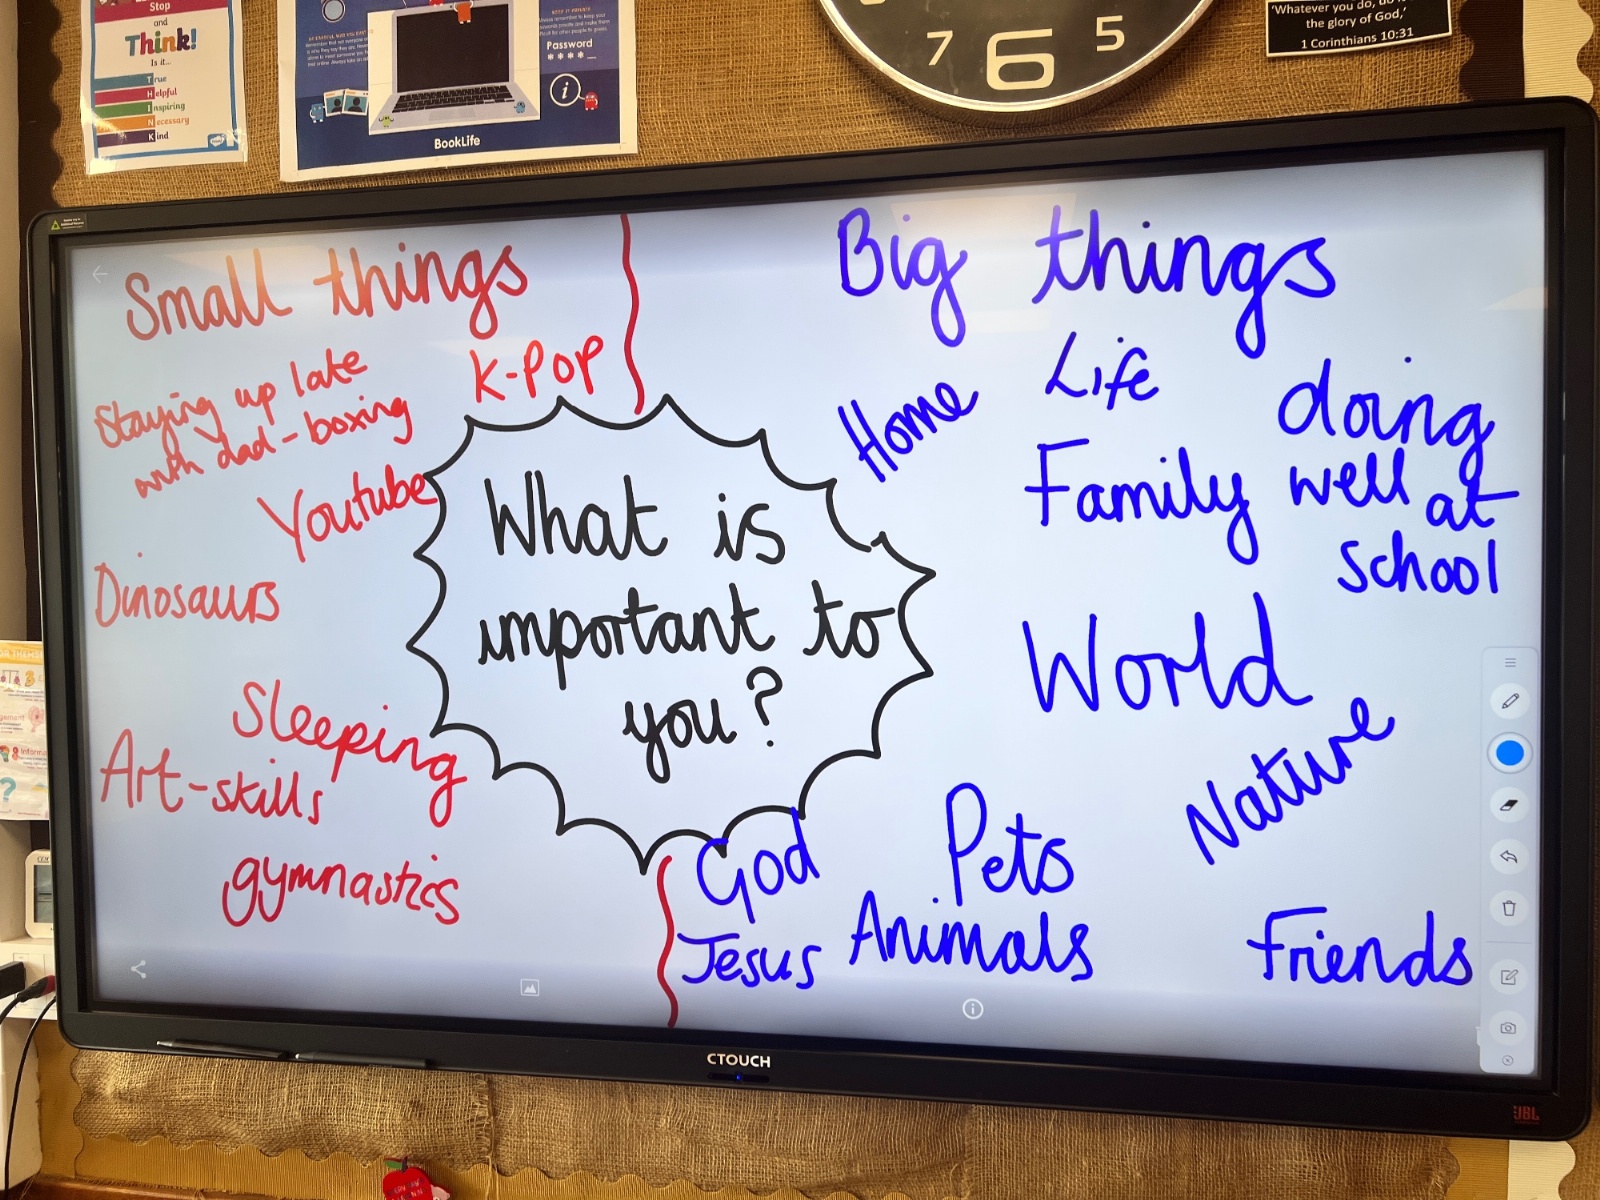 Stop
and
Think!
Is it...
True
Helpful
Inspiring
Necessary
Kind
Password
****_
i
BookLife
7
6
5
'Whatever you do, do it
the glory of God,'
1 Corinthians 10:31
Small things
K-Pop
Staying up late
with dad-boxing
Youtube
Dinosaurs
Sleeping
Art-skills
gymnastics
What is
important to
you?
Big things
Home
Life
doing
well at
school
Family
World
Nature
Pets
God
Jesus
Animals
Friends
CTOUCH
JBL